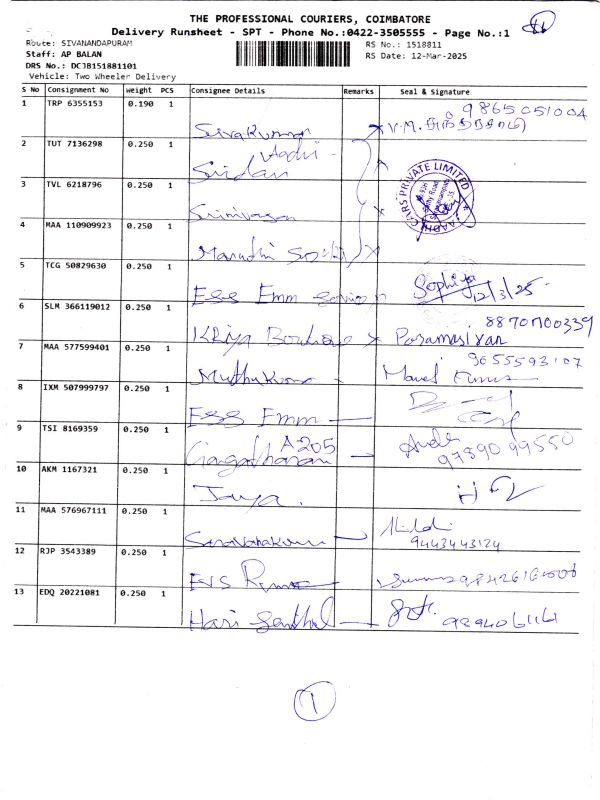 THE PROFESSIONAL COURIERS, COIMBATORE
Delivery Runsheet - SPT - Phone No.:0422-3505555 - Page No.:1
Route: SIVANANDAPURAM
RS No.: 1518811
Staff: AP BALAN
RS Date: 12-Mar-2025
DRS No.: DCJB151881101
Vehicle: Two Wheeler Delivery
S No Consignment No weight PCS Consignee Details Remarks Seal & Signature
1 TRP 6355153 0.190 1 Sivakumar V.M. 9865051004
2 TUT 7136298 0.250 1 Aadhi Sridar
3 TVL 6218796 0.250 1 Srinivasan
AADHI CARS PRIVATE LIMITED
4 MAA 110909923 0.250 1 Maruthi
5 TCG 50829630 0.250 1 Ess Emm Sophiya 12/3/25
6 SLM 366119012 0.250 1 Kriya Paramasivan 8870700339
7 MAA 577599401 0.250 1 Muthukumar 9655593107
8 IXM 507999797 0.250 1 Ess Emm
9 TSI 8169359 0.250 1 Gangatharan A205 9789099550
10 AKM 1167321 0.250 1 Jaya.
11 MAA 576967111 0.250 1 Saravanakumar 9443443124
12 RJP 3543389 0.250 1
13 EDQ 20221081 0.250 1 Hari Senthil
1